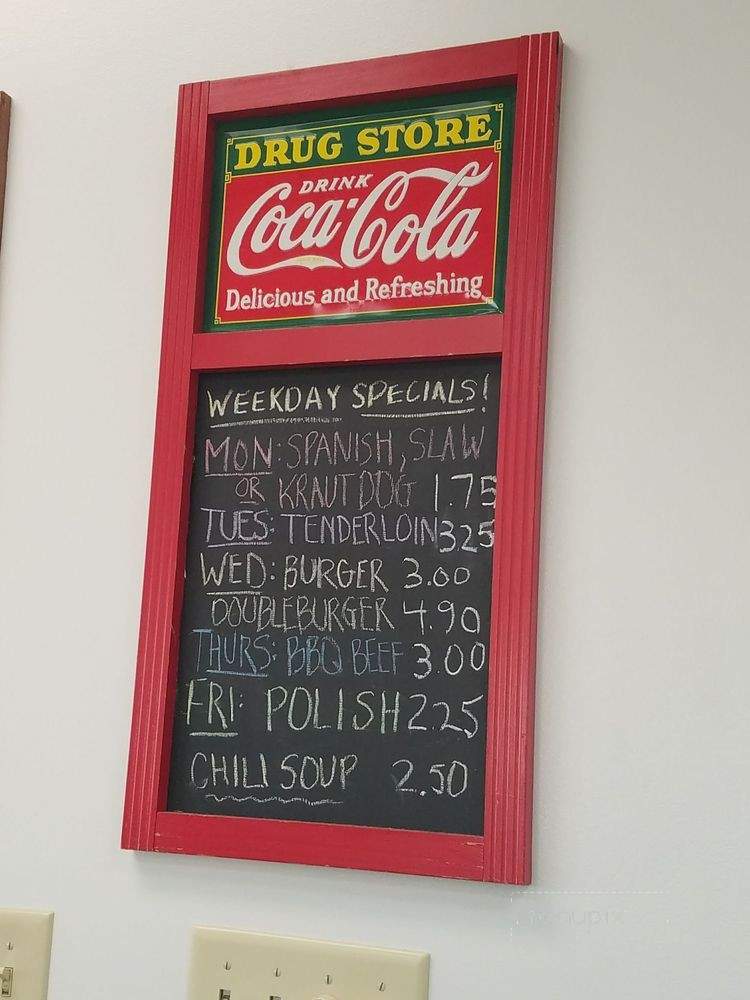 DRUG STORE
DRINK
Coca-Cola
Delicious and Refreshing
WEEKDAY SPECIALS!
MON: SPANISH, SLAW
OR KRAUT DOG 1.75
TUES: TENDERLOIN 325
WED: BURGER 3.00
DOUBLEBURGER 4.90
THURS: BBQ BEEF 3.00
FRI: POLISH 2.25
CHILI SOUP 2.50